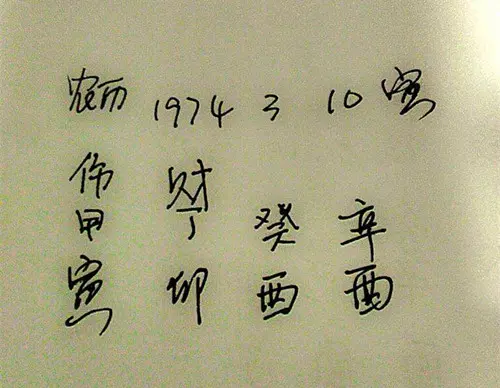 农历 1974 3 10 寅
伤 财
甲 丁 癸 辛
寅 卯 酉 酉